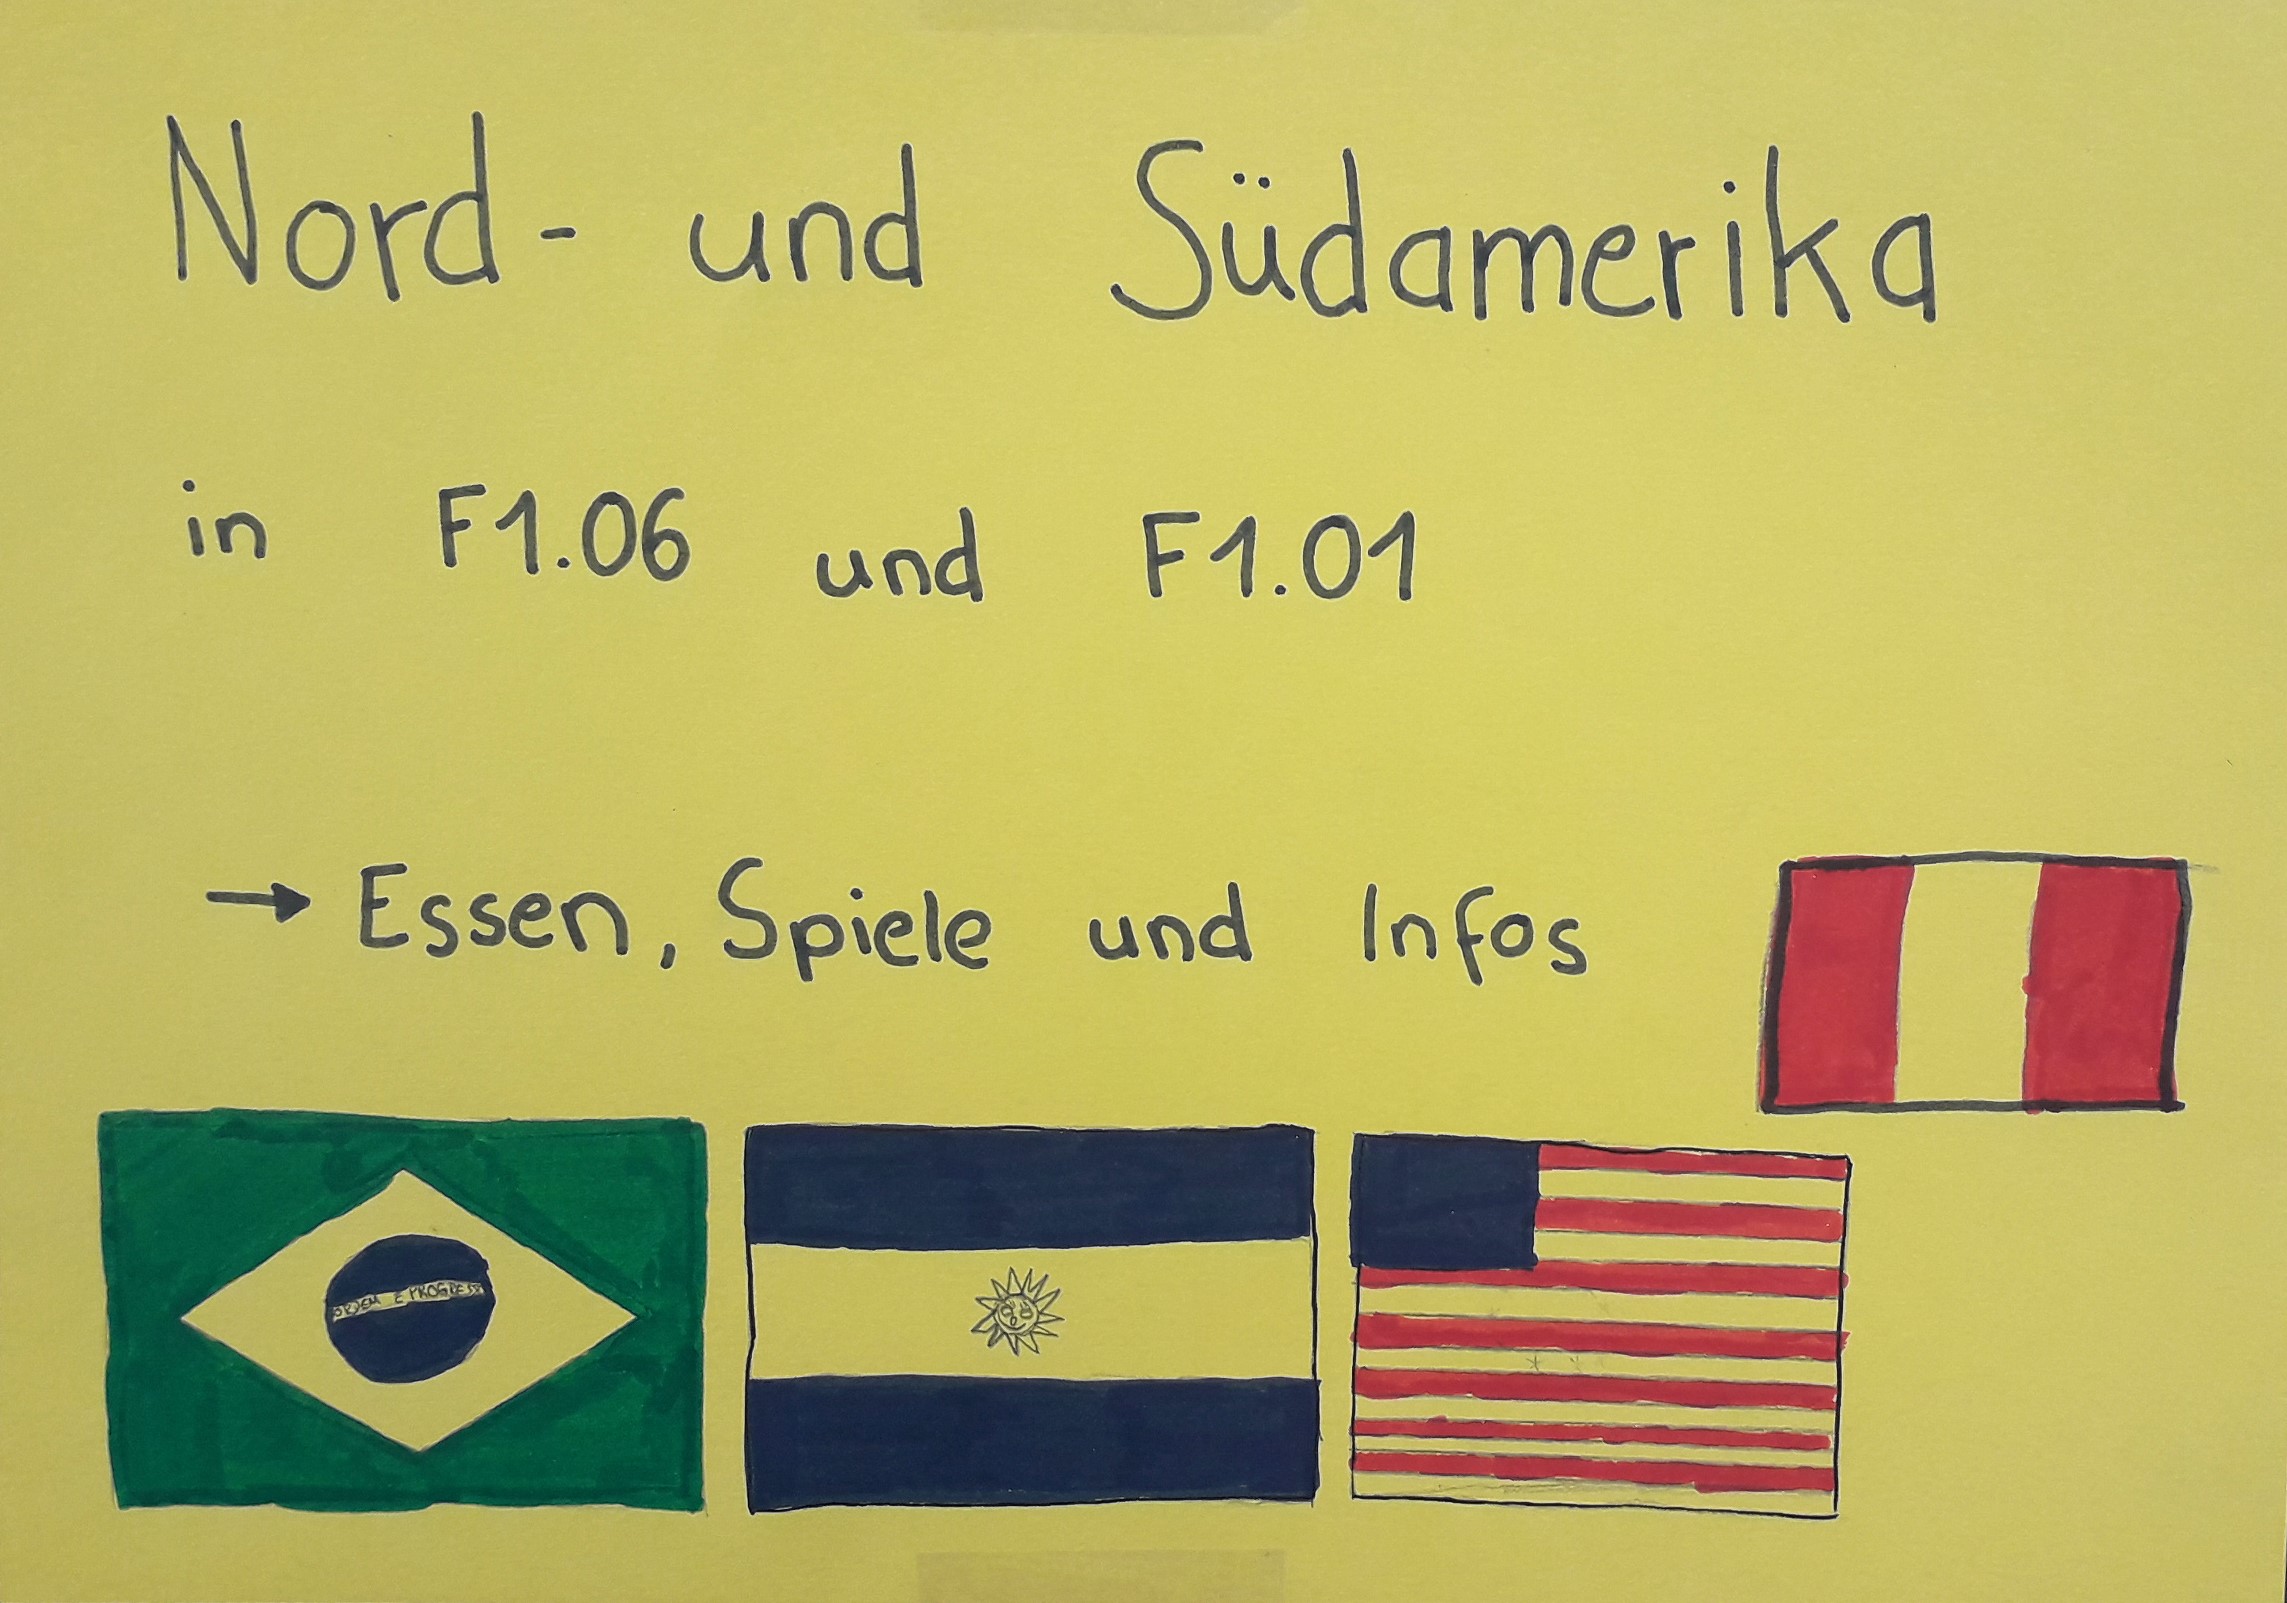 Nord- und Südamerika
in F1.06 und F1.01
→ Essen, Spiele und Infos
ORDEM E PROGRESSO